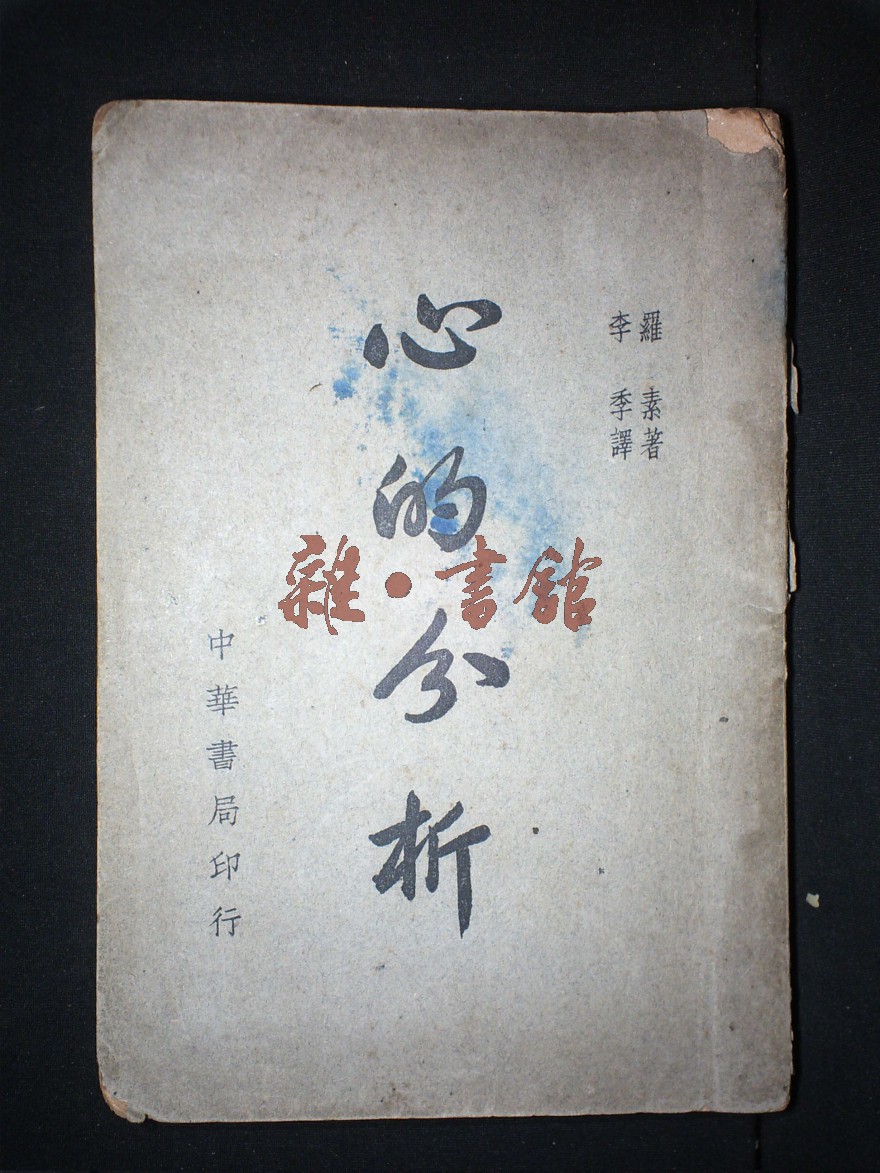 羅素著
李季譯
心的分析
中華書局印行
雜·書館